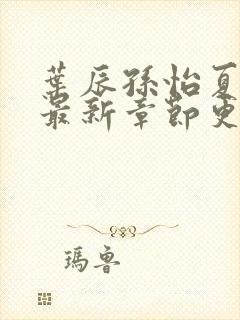 葉辰孫怡夏
最新章節更
瑪魯